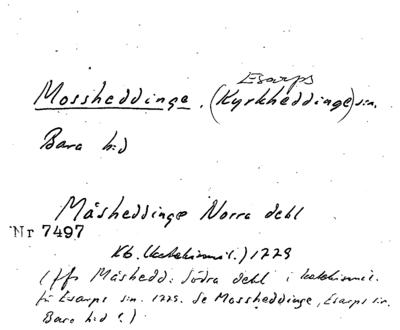 Esarps
Mossheddinge. (Kyrkheddinge) sn.
Bara hd
Måsheddinge Norra dehl
Nr 7497
Kb. (katekismil.) 1729
(jfr Måshedd. Södra dehl i katekismil.
för Esarps sn. 1729. Se Mossheddinge, Esarps sn.
Bara hd!)